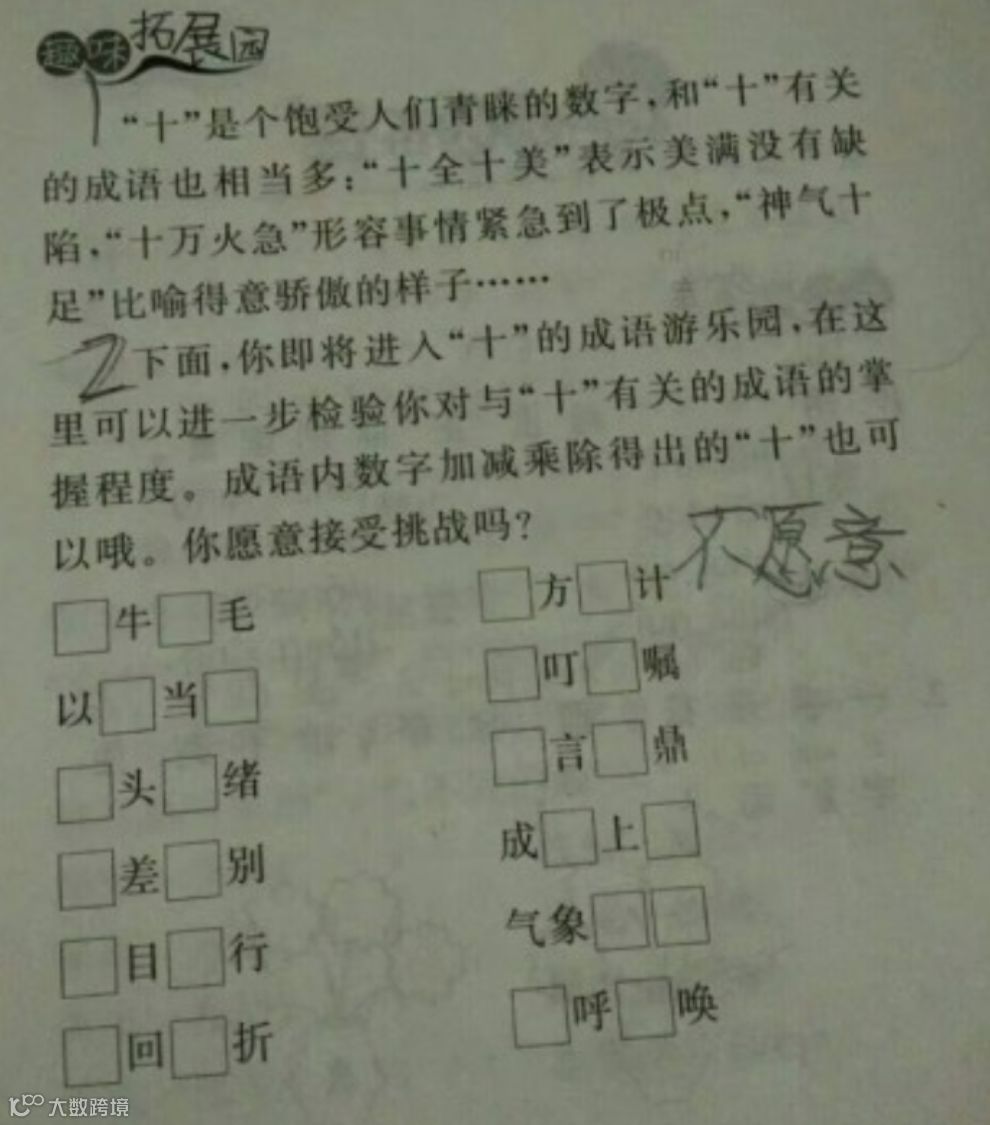 趣味拓展园
“十”是个饱受人们青睐的数字,和“十”有关
的成语也相当多:“十全十美”表示美满没有缺
陷,“十万火急”形容事情紧急到了极点,“神气十
足”比喻得意骄傲的样子……
2下面,你即将进入“十”的成语游乐园,在这
里可以进一步检验你对与“十”有关的成语的掌
握程度。成语内数字加减乘除得出的“十”也可
以哦。你愿意接受挑战吗?
不愿意
□牛□毛 □方□计
以□当□ □叮□嘱
□头□绪 □言□鼎
□差□别 成□上□
□目□行 气象□□
□回□折 □呼□唤
大数跨境